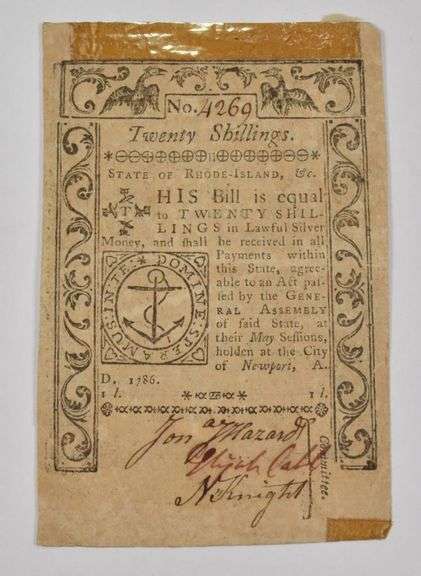 No. 4269
Twenty Shillings.
STATE OF RHODE-ISLAND, &c.
THIS Bill is equal
to TWENTY SHIL-
LINGS in Lawful Silver
Money, and shall be received in all
Payments within
this State, agree-
able to an Act pas-
sed by the GENE-
RAL ASSEMBLY
of said State, at
their May Sessions,
holden at the City
of Newport, A.
D. 1786.
IN TE DOMINE SPERAMUS
1 l. 1 l.
Jon a Hazard
Elijah Cobb
N Knight
Committee.